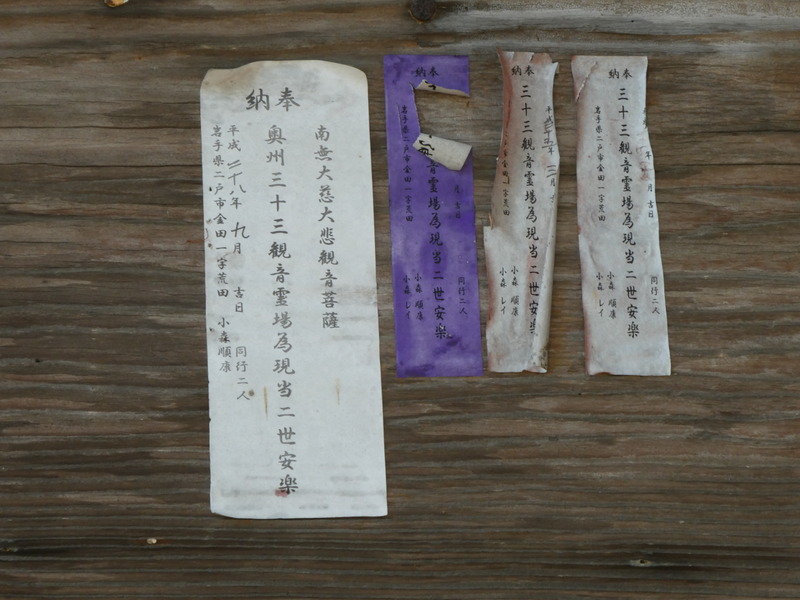 奉納
南無大慈大悲観音菩薩
奥州三十三観音霊場為現当二世安楽
平成二十八年九月 吉日 同行二人
岩手県二戸市金田一字荒田 小森順康
奉納
観音霊場為現当二世安楽
月 吉日 同行二人
岩手県二戸市金田一字荒田 小森 順康
小森 レイ
奉納
三十三観音霊場為現当二世安楽
平成二十五年
月
字荒田 小森 順康
小森 レイ
奉納
三十三観音霊場為現当二世安楽
年 月 吉日 同行二人
岩手県二戸市金田一字荒田 小森 順康
小森 レイ